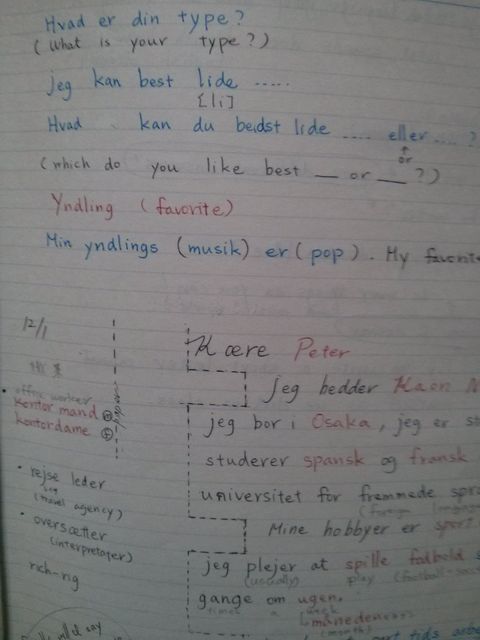 Hvad er din type?
(What is your type?)
jeg kan best lide .....
[li]
Hvad kan du bedst lide .... eller .... ?
or
(which do you like best __ or __ ?)
Yndling (favorite)
Min yndlings (musik) er (pop). My favorite
12/1
Kære Peter
jeg hedder Kaon
office worker
kontor mand
kontordame
jeg bor i Osaka, jeg er
studerer spansk og fransk
rejse leder
(travel agency)
universitet for fremmede
(foreign
oversætter
(interpretater)
Mine hobbyer er sport
rich-rig
jeg plejer at spille fodbold
(usually) play (football
gange om ugen.
times a week
månedenen
(month)